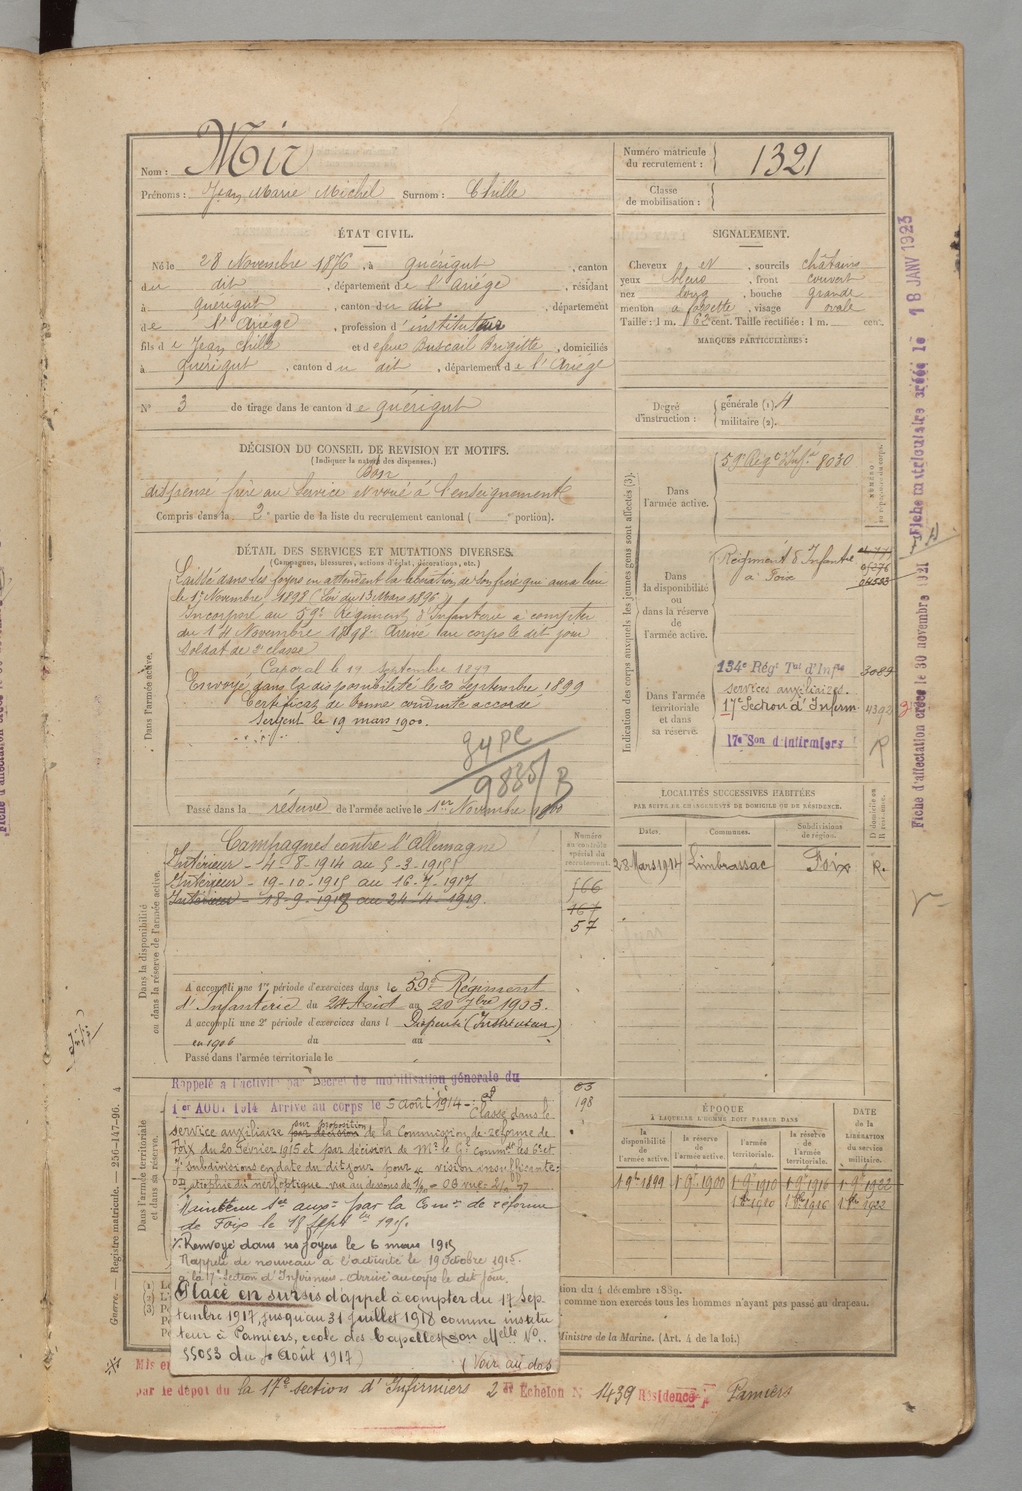 Nom : Mir
Prénoms : Jean Marie Michel Surnom : Chille
Numéro matricule du recrutement : 1321
Classe de mobilisation :
ÉTAT CIVIL.
Né le 28 Novembre 1876, à Quérigut, canton
du dit, département de l'Ariège, résidant
à Quérigut, canton du dit, département
de l'Ariège, profession d'instituteur
fils de Jean Chille et de feue Buscail Brigitte, domiciliés
à Quérigut, canton du dit, département de l'Ariège
N° 3 de tirage dans le canton de Quérigut
SIGNALEMENT.
Cheveux et, sourcils châtains
yeux bleus, front couvert
nez long, bouche grande
menton à fossette, visage ovale
Taille : 1 m. 62 cent. Taille rectifiée : 1 m. cent.
MARQUES PARTICULIÈRES :
Degré d'instruction : générale (1). 4
militaire (2).
DÉCISION DU CONSEIL DE REVISION ET MOTIFS.
(Indiquer la nature des dispenses.)
Bon
dispensé frère au service et voué à l'enseignement
Compris dans la 2e partie de la liste du recrutement cantonal ( portion).
DÉTAIL DES SERVICES ET MUTATIONS DIVERSES.
(Campagnes, blessures, actions d'éclat, décorations, etc.)
Dans l'armée active.
Laissé dans ses foyers en attendant la libération de son frère qui aura lieu
le 1er Novembre 1898 (Loi du 13 Mars 1896)
Incorporé au 59e Régiment d'Infanterie à compter
du 14 Novembre 1898. Arrivé au corps le dit jour
Soldat de 2e classe
Caporal le 19 Septembre 1899
Envoyé dans la disponibilité le 20 Septembre 1899
Certificat de bonne conduite accordé
Sergent le 19 mars 1900.
9835/B
Passé dans la réserve de l'armée active le 1er Novembre 1900
Indication des corps auxquels les jeunes gens sont affectés (3).
Dans l'armée active.
59e Régt Infie 8030
Dans la disponibilité ou dans la réserve de l'armée active.
Régiment d'Infantie
à Foix
04553
Dans l'armée territoriale et dans sa réserve.
134e Régt Tal d'Infie 3089
services auxiliaires.
17e Section d'Infirm 4392
17e Son d'infirmiers
R
LOCALITÉS SUCCESSIVES HABITÉES
PAR SUITE DE CHANGEMENTS DE DOMICILE OU DE RÉSIDENCE.
Dates. Communes. Subdivisions de région. D domicile ou R résidence.
28 Mars 1914 Limbrassac Foix R.
Dans la disponibilité ou dans la réserve de l'armée active.
Campagnes contre l'Allemagne
Intérieur - 4-8-1914 au 5-3-1915
Intérieur - 19-10-1915 au 16-7-1917
Intérieur - 18-9-1917 au 24-4-1919.
Numéro au contrôle spécial du recrutement.
166
167
57
A accompli une 1re période d'exercices dans le 59e Régiment
d'Infanterie du 24 Août au 20 7bre 1903.
A accompli une 2e période d'exercices dans l Dispensé (Instituteur)
en 1906 du au
Passé dans l'armée territoriale le
Dans l'armée territoriale et dans sa réserve.
Rappelé à l'activité par Décret de mobilisation générale du
1er AOUT 1914 Arrivé au corps le 5 août 1914 - Classé dans le
service auxiliaire par décision sur proposition de la Commission de réforme de
Foix du 20 Février 1915 et par décision de Mr le Gl commdt les 6e et
7e subdivisions en date du dit jour pour vision insuffisante
Maintenu Ser aux par la Comon de réforme
de Foix le 18 Septbre 1915.
Renvoyé dans ses foyers le 6 mars 1915
Rappelé de nouveau à l'activité le 19 octobre 1915.
à la 17e Section d'Infirmiers - Arrivé au corps le dit jour.
Placé en sursis d'appel à compter du 17 Sep
tembre 1917, jusqu'au 31 Juillet 1918 comme institu
teur à Pamiers, école des Capelles (son Melle No
55053 du Août 1917)
(Voir au dos
198
ÉPOQUE
À LAQUELLE L'HOMME DOIT PASSER DANS
la disponibilité de l'armée active. la réserve de l'armée active. l'armée territoriale. la réserve de l'armée territoriale.
DATE DE LA LIBÉRATION du service militaire.
19bre 1899 1 9bre 1900 1 9bre 1910 1 9bre 1916 1 9bre 1922
1 8bre 1910 1 8bre 1916 1 8bre 1922
tion du 4 décembre 1889.
comme non exercés tous les hommes n'ayant pas passé au drapeau.
Ministre de la Marine. (Art. 4 de la loi.)
Mis en
par le dépôt du la 17e section d'Infirmiers 2e Échelon N° 1439 Résidence Pamiers
Guerre. Registre matricule. — 256-147-96. 4
Fiche matriculaire créée le 18 JANV 1923
Fiche d'affectation créée le 30 novembre 1921